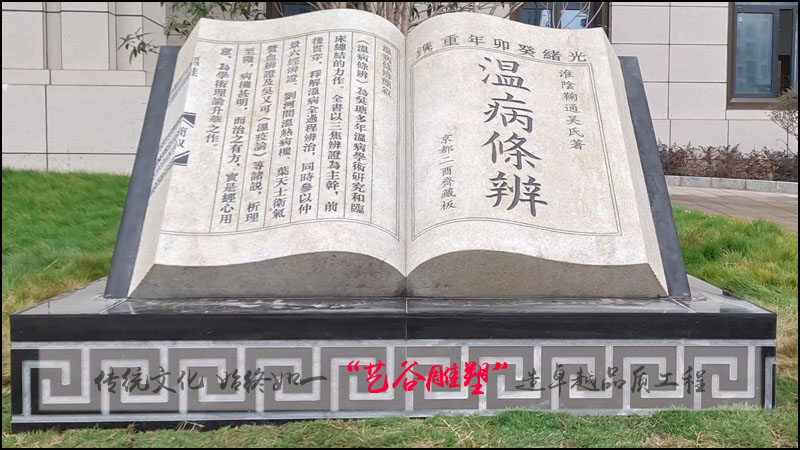 光緒癸卯年重鐫
淮陰鞠通吴氏著
温病條辨
京都二酉齋藏板
温病條辨簡叙
《温病條辨》為吳瑭多年温病學術研究和臨
床總結的力作。全書以三焦辨證為主幹，前
後貫穿，釋解温病全過程辨治，同時參以仲
景六經辨證、劉河間温熱病機、葉天士衛氣
營血辨證及吳又可《温疫論》等諸説，析理
至微，病機甚明，而治之有方，實是經心用
意，為學術理論升華之作。
传统文化 始终如一 “艺谷雕塑” 造卓越品质工程